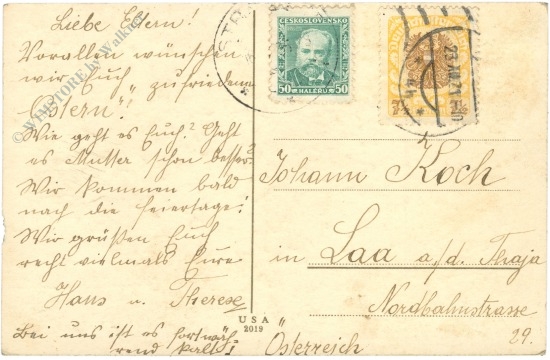 Liebe Eltern!
Vorallen wünschen
wir Euch zufriedene
Ostern"!
Wie geht es Euch? Geht
es Mutter schon besser?
Wir kommen bald
nach die feiertage!
Wir grüßen Euch
recht vielmals Eure
Hans u. Therese
Bei uns ist es fortwäh-
rend kalt!
©WINSTORE by Walkner
ČESKOSLOVENSKO
50 HALÉŘŮ 50
USA
2019
Johann Koch
in Laa a/d. Thaja
Nordbahnstrasse
29.
Österreich